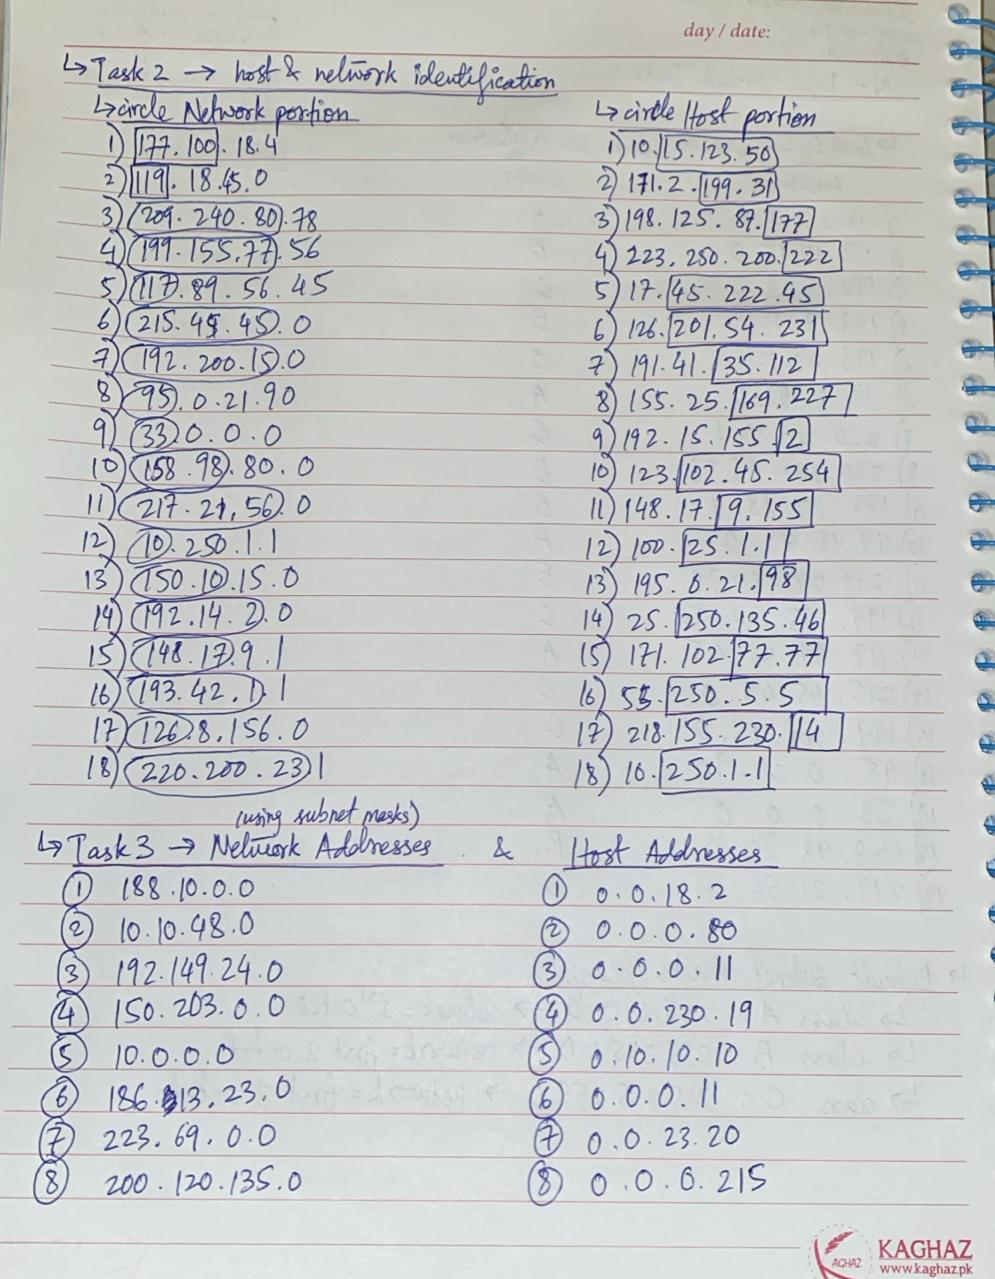 day / date:
↳ Task 2 → host & network identification
↳ circle Network portion
1) 177.100.18.4
2) 119.18.45.0
3) 209.240.80.78
4) 199.155.77.56
5) 117.89.56.45
6) 215.45.45.0
7) 192.200.15.0
8) 95.0.21.90
9) 33.0.0.0
10) 158.98.80.0
11) 217.21.56.0
12) 10.250.1.1
13) 150.10.15.0
14) 192.14.2.0
15) 148.17.9.1
16) 193.42.1.1
17) 126.8.156.0
18) 220.200.23.1
↳ circle Host portion
1) 10.15.123.50
2) 171.2.199.31
3) 198.125.87.177
4) 223.250.200.222
5) 17.45.222.45
6) 126.201.54.231
7) 191.41.35.112
8) 155.25.169.227
9) 192.15.155.2
10) 123.102.45.254
11) 148.17.9.155
12) 100.25.1.1
13) 195.0.21.98
14) 25.250.135.46
15) 171.102.77.77
16) 55.250.5.5
17) 218.155.230.14
18) 10.250.1.1
(using subnet masks)
↳ Task 3 → Network Addresses & Host Addresses
① 188.10.0.0
② 10.10.48.0
③ 192.149.24.0
④ 150.203.0.0
⑤ 10.0.0.0
⑥ 186.13.23.0
⑦ 223.69.0.0
⑧ 200.120.135.0
① 0.0.18.2
② 0.0.0.80
③ 0.0.0.11
④ 0.0.230.19
⑤ 0.10.10.10
⑥ 0.0.0.11
⑦ 0.0.23.20
⑧ 0.0.0.215
KAGHAZ
www.kaghaz.pk